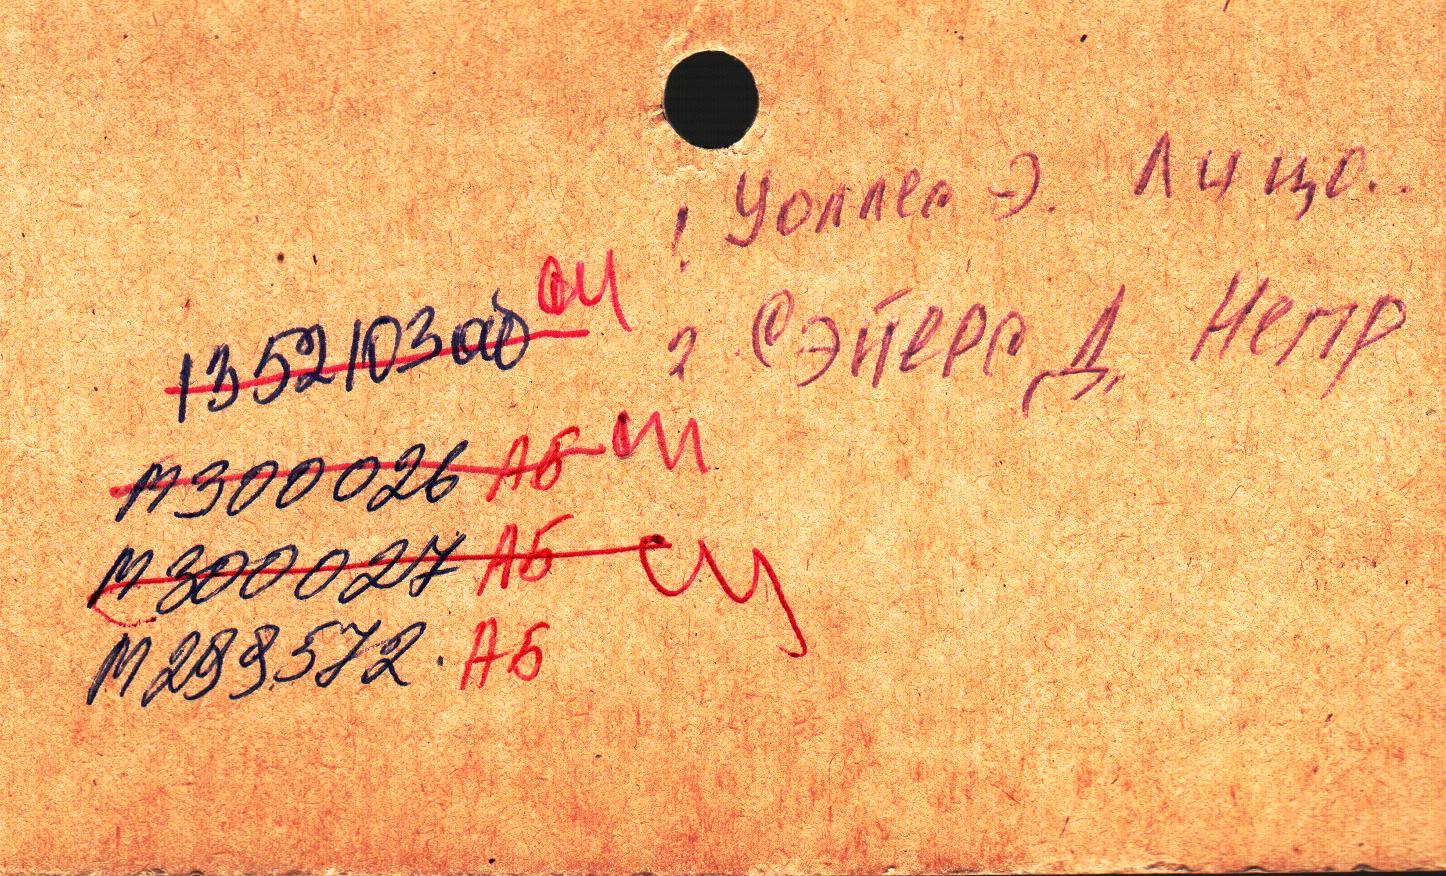 ! Уоллес Э. Лицо..
2 Сэйерс Д. Непр
1352103аб
М300026 АБ
М300027 АБ
М299572. АБ